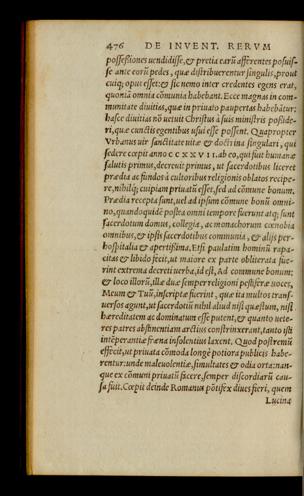 476 DE INVENT. RERVM
possessiones uendidisse, & pretia earū afferentes posuis-
se ante eorū pedes, quæ distribuerentur singulis, prout
cuiq; opus esset: & sic nemo inter credentes egens erat,
quoniā omnia cōmunia habebant. Ecce magnas in com-
munitate diuitias, quæ in priuato paupertas habebātur:
hasce diuitias nō uetuit Christus à suis ministris posside-
ri, quæ cunctis egentibus usui esse possent. Quapropter
Vrbanus uir sanctitate uitæ & doctrina singulari, qui
sedere cœpit anno CCXXVII. ab eo, qui fuit humanæ
salutis primus, decreuit primus, ut sacerdotibus liceret
prædia ac fundos à cultoribus religionis oblatos recipe-
re, nihilq; cuipiam priuatū esset, sed ad cōmune bonum.
Prædia recepta sunt, uel ad ipsum cōmune bonū omni-
no, quandoquidē postea omni tempore fuerunt atq; sunt
sacerdotum domus, collegia, ac monachorum cœnobia
omnibus, & ipsis sacerdotibus communia, & alijs per-
hospitalia & apertissima. Etsi paulatim hominū rapa-
citas & libido fecit, ut maiore ex parte obliterata fue-
rint extrema decreti uerba, id est, Ad commune bonum;
& loco illorū, illæ duæ semper religioni pestiferæ uoces,
Meum & Tuū, inscriptæ fuerint, quæ ita multos trans-
uersos agunt, ut sacerdotiū nihil aliud nisi quæstum, nisi
hæreditatem ac dominatum esse putent, & quanto uete-
res patres abstinentiam arctius constrinxerant, tanto isti
intēperantiæ fræna insolentius laxent. Quod postremū
effecit, ut priuata cōmoda longè potiora publicis habe-
rentur: unde maleuolentiæ, simultates & odia orta: nan-
que ex cōmuni priuatū facere, semper discordiarū cau-
sa fuit. Cœpit deinde Romanus pōtifex diues fieri, quem
Lucina